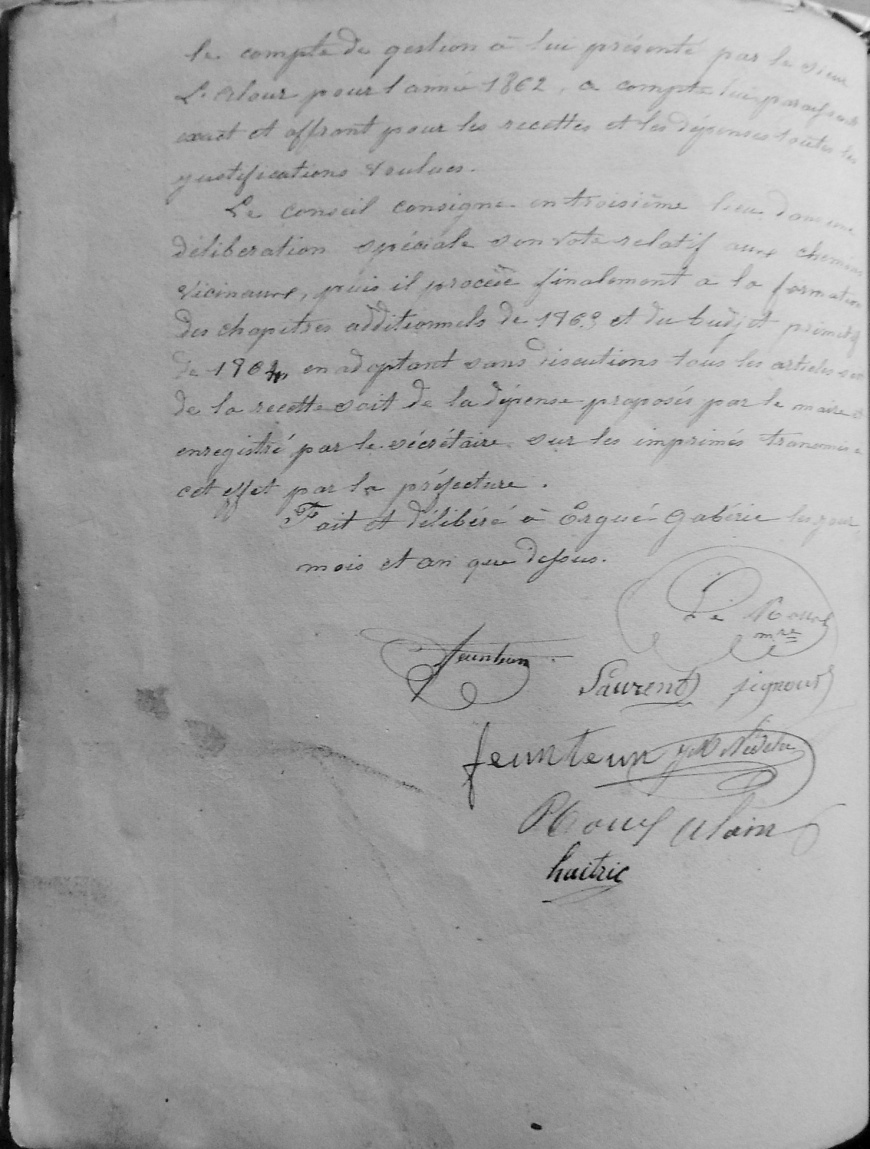 le compte de gestion à lui présenté par le sieur
L. Alour pour l'année 1862, a compte lui paraissant
exact et offrant pour les recettes et les dépenses toutes les
justifications voulues.
Le conseil consigne en troisième lieu dans une
délibération spéciale son vote relatif aux chemins
vicinaux, puis il procède finalement à la formation
des chapitres additionnels de 1863 et du budjet primitif
de 1864, en adoptant sans discutions tous les articles soit
de la recette soit de la dépense proposés par le maire &
enregistré par le sécrétaire sur les imprimés transmis à
cet effet par la préfecture.
Fait et délibéré à Ergué Gabéric les jour,
mois et an que dessus.
Le Rouxs
mre
feunteun
Laurent signour
feunteun Nédelec
Rouxs Alain
huitric